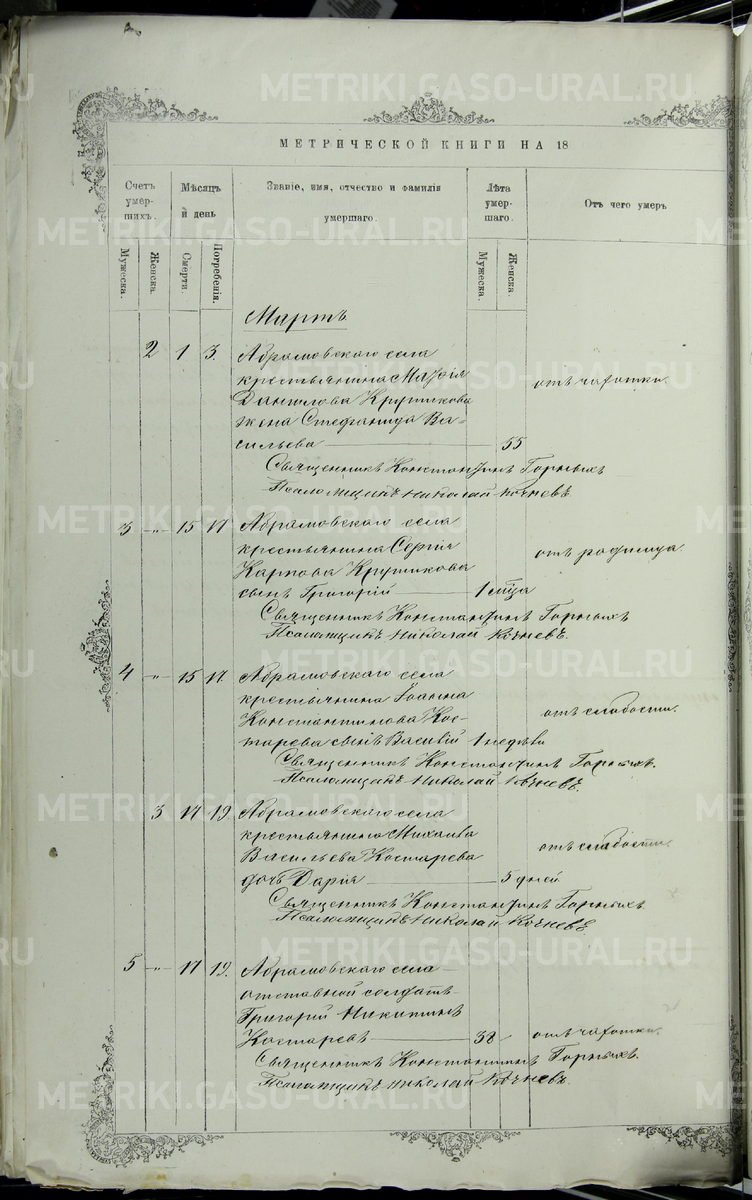 МЕТРИЧЕСКОЙ КНИГИ НА 18
Счетъ умер- шихъ. Мѣсяцъ и день Званіе, имя, отчество и фамилія умершаго. Лѣта умер- шаго. Отъ чего умеръ
Мужеска. Женска. Смерти. Погребенія. Мужеска. Женска.
Мартъ
2 1 3. Абрамовскаго села
крестьянина Марія
Данилова Крутикова отъ чахотки.
жена Стефанида Ва=
сильева 55
Священникъ Константинъ Горныхъ
Псаломщикъ Николай Кочневъ.
3 " 15 17 Абрамовскаго села
крестьянина Сергія отъ родимца.
Карпова Крутикова
сынъ Григорій 1 мѣца
Священникъ Константинъ Горныхъ
Псаломщикъ Николай Кочневъ.
4 " 15 17. Абрамовскаго села
крестьянина Іоанна
Константинова Кос- отъ слабости.
тарева сынъ Василій 1 недѣли
Священникъ Константинъ Горныхъ.
Псаломщикъ Николай Кочневъ.
3 17 19 Абрамовскаго села
крестьянина Михаила
Васильева Костарева отъ слабости.
дочь Дарія 5 дней
Священникъ Константинъ Горныхъ.
Псаломщикъ Николай Кочневъ
5 " 17 19. Абрамовскаго села
отставной солдатъ
Григорій Никитинъ
Костаревъ 38 отъ чахотки.
Священникъ Константинъ Горныхъ.
Псаломщикъ Николай Кочневъ.
METRIKI.GASO-URAL.RU